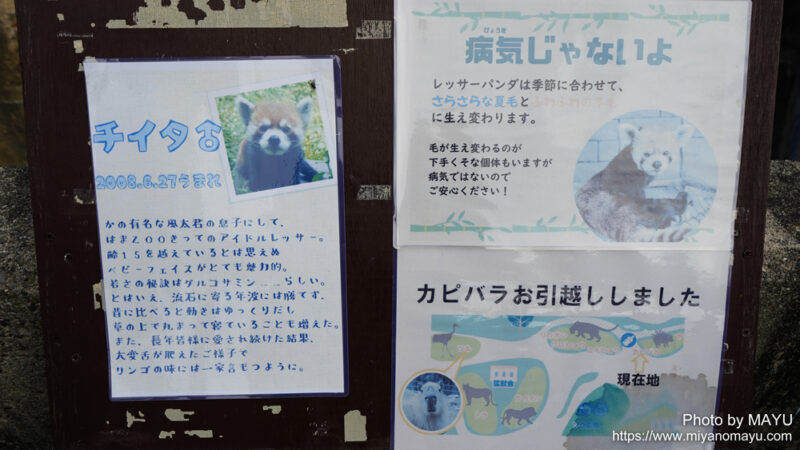 チイタ♂
2008.6.27うまれ
かの有名な風太君の息子にして、
はまZOOきってのアイドルレッサー。
齢15を越えているとは思えぬ
ベビーフェイスがとても魅力的。
若さの秘訣はグルコサミン……らしい。
とはいえ、流石に寄る年波には勝てず、
昔に比べると動きはゆっくりだし
草の上で丸まって寝ていることも増えた。
また、長年皆様に愛され続けた結果、
大変舌が肥えたご様子で
リンゴの味には一家言もつように。
びょうき
病気じゃないよ
レッサーパンダは季節に合わせて、
さらさらな夏毛とふわふわの冬毛
に生え変わります。
毛が生え変わるのが
下手くそな個体もいますが
病気ではないので
ご安心ください!
カピバラお引越ししました
猛獣舎
現在地
Photo by MAYU
https://www.miyanomayu.com